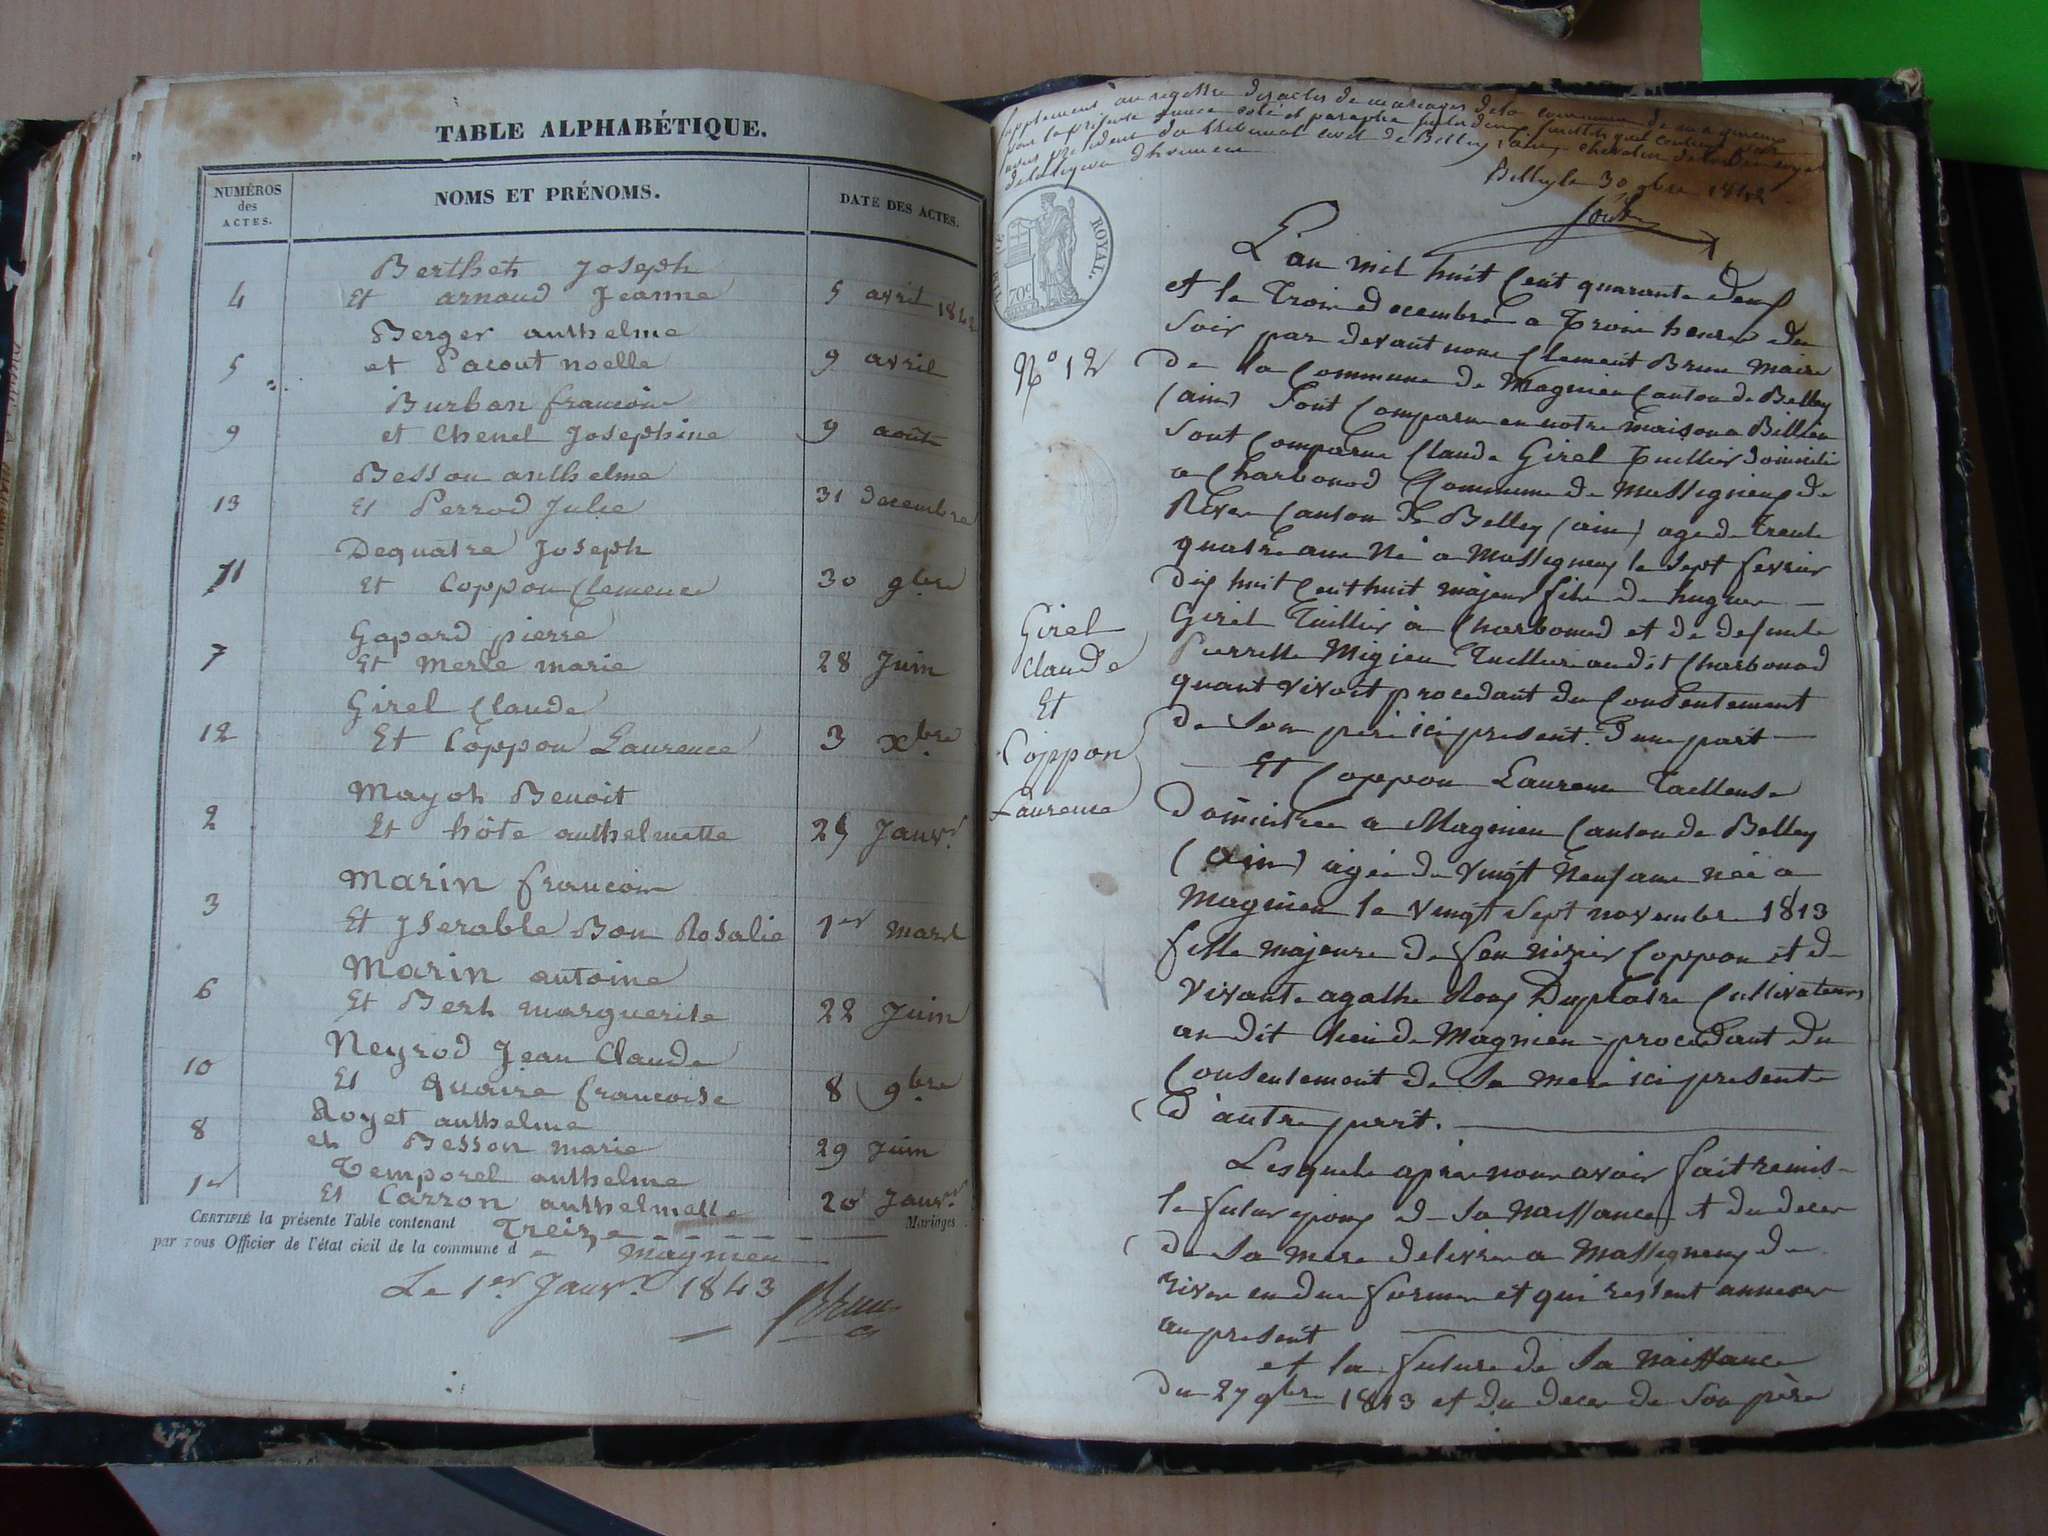 TABLE ALPHABÉTIQUE.
NUMÉROS des ACTES.
NOMS ET PRÉNOMS.
DATE DES ACTES.
Berthet Joseph
4 Et arnaud Jeanne 5 avril 1842
Berger anthelme
5 et Pacout noelle 9 avril
Burban francois
9 et Chenel Josephine 9 août
Besson anthelme
13 Et Perrod Julie 31 decembre
Dequatre Joseph
11 Et Coppon Clemence 30 9bre
Gopard pierre
7 Et Merle marie 28 Juin
Girel Claude
12 Et Coppon Laurence 3 Xbre
Mayot Benoit
2 Et hôte anthelmette 25 Janvr.
Marin francois
3 Et yserable Bon Rosalie 1er mars
Marin antoine
6 Et Bert marguerite 22 Juin
Neyrod Jean Claude
10 Et Quaire francoise 8 9bre
Royet anthelme
8 et Besson marie 29 Juin
Temporel anthelme
1er Et Carron anthelmette 20 Janvr.
CERTIFIÉ la présente Table contenant Treize Mariages
par nous Officier de l'état civil de la commune de magnieu
Le 1er Janvr. 1843
Brun
Supplement au registre des actes de mariages de la commune de magnieu
pour la presente année coté et paraphé par feuillets
president du tribunal civil de Belley chevalier de l'ordre royal
de la legion d'honneur
Belley le 30 9bre 1842
TIMBRE ROYAL.
70c
L'an mil huit Cent quarante deux
et le Trois decembre a Trois heures du
soir par devant nous Clement Brun maire
de la Commune de Magnieu Canton de Belley
(ain) Sont Comparu en notre maison a Billieu
N° 12
sont Comparu Claude Girel Tuillier domicilié
a Charbonod Commune de Massigneux de
Rives Canton de Belley (ain) age de trente
quatre ans Né a Massigneux le sept fevrier
dix huit Cent huit majeur fils de hugues
Girel Tuillier a Charbonod et de defunte
Pierrette Migieu Tuilliere audit Charbonod
quant vivoit procedant du Consentement
de Son pere ici present. d'une part
Girel
Claude
Et
Coppon
Laurence
Et Coppon Laurence Tailleuse
Domiciliee a Magnieu Canton de Belley
(Ain) agée de Vingt Neuf ans née a
Magnieu le Vingt Sept novembre 1813
fille majeure de feu nizier Coppon et de
Vivante agathe Roux Duplatre Cultivateurs
au dit lieu de Magnieu procedant du
Consentement de Sa mere ici presente
d'autre part.
Lesquels après nous avoir fait remis
le futur epoux de Sa naissance et du deces
de Sa mere delivrer a Massigneux de
rives en due forme et qui restent annexer
au present
et la future de Sa naissance
du 27 9bre 1813 et du deces de Son père